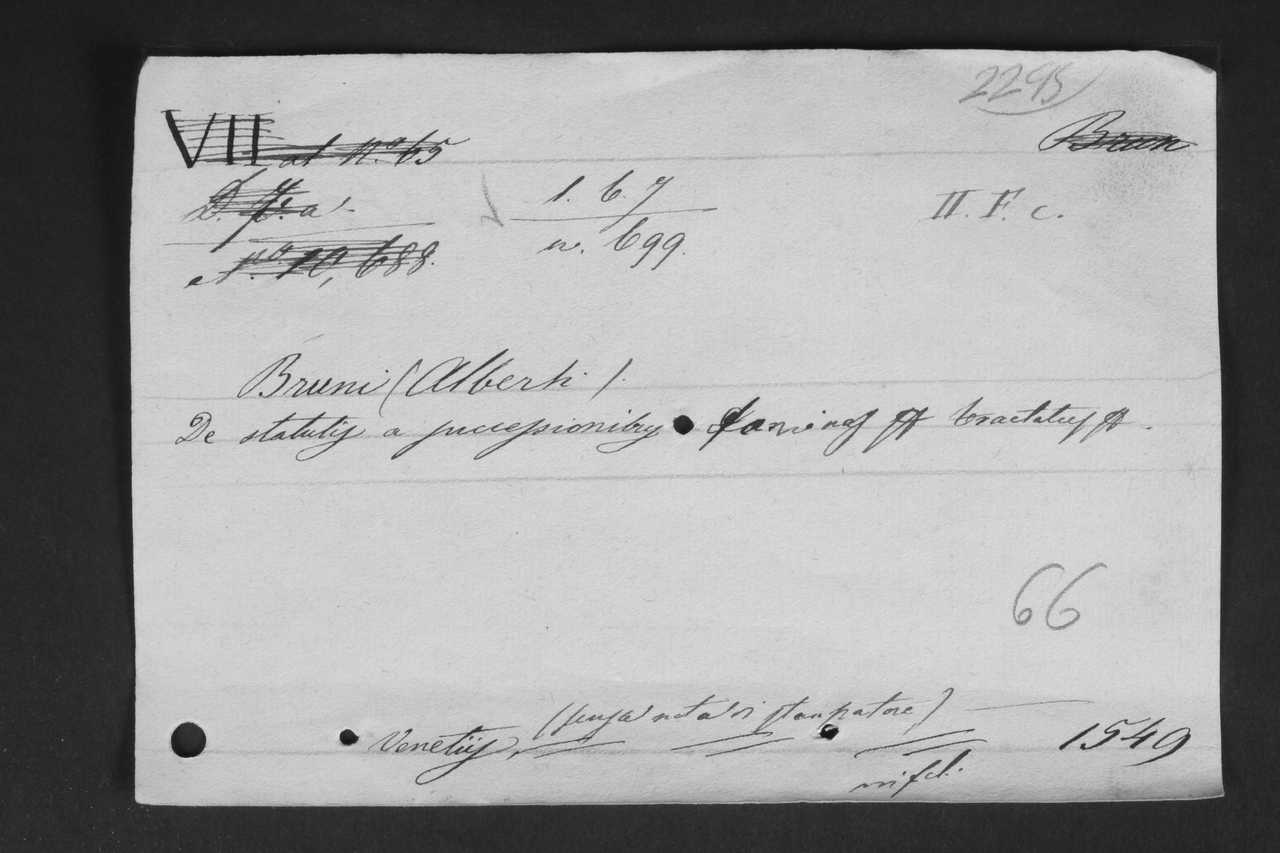 2295
VII at No. 65
Brun
D. 7. a
1. 6. 7
II. F. c.
No. 10,688.
n. 699.
Bruni (Alberti).
De statutis a successionibus faminas tractatus
66
(senza nota di stampatore)
Venetiis, 1549
in fol.